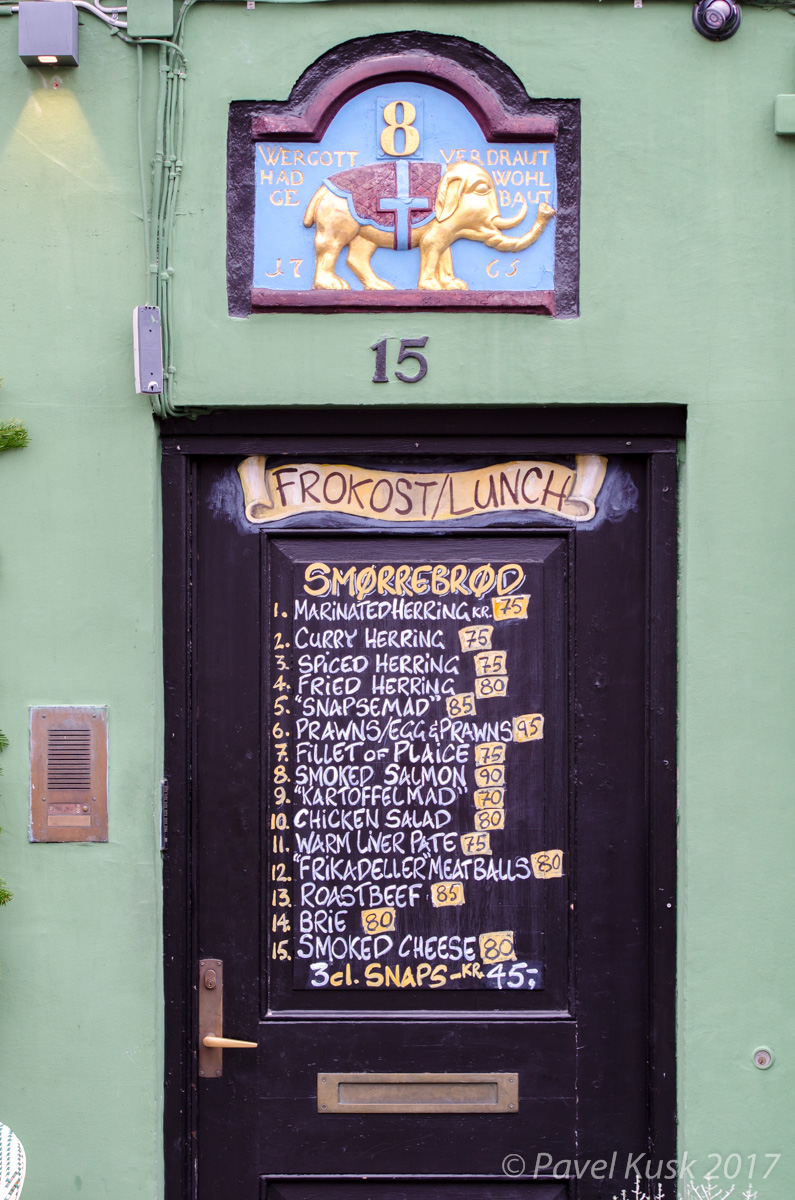 8
WERGOTT VERDRAUT
HAD WOHL
GE BAUT
17 65
15
FROKOST/LUNCH
SMØRREBRØD
1. MARINATED HERRING KR. 75
2. CURRY HERRING 75
3. SPICED HERRING 75
4. FRIED HERRING 80
5. "SNAPSEMAD" 85
6. PRAWNS/EGG & PRAWNS 95
7. FILLET OF PLAICE 75
8. SMOKED SALMON 90
9. "KARTOFFELMAD" 70
10. CHICKEN SALAD 80
11. WARM LIVER PATE 75
12. "FRIKADELLER" MEATBALLS 80
13. ROASTBEEF 85
14. BRIE 80
15. SMOKED CHEESE 80
3cl. SNAPS - KR. 45,-
© Pavel Kusk 2017